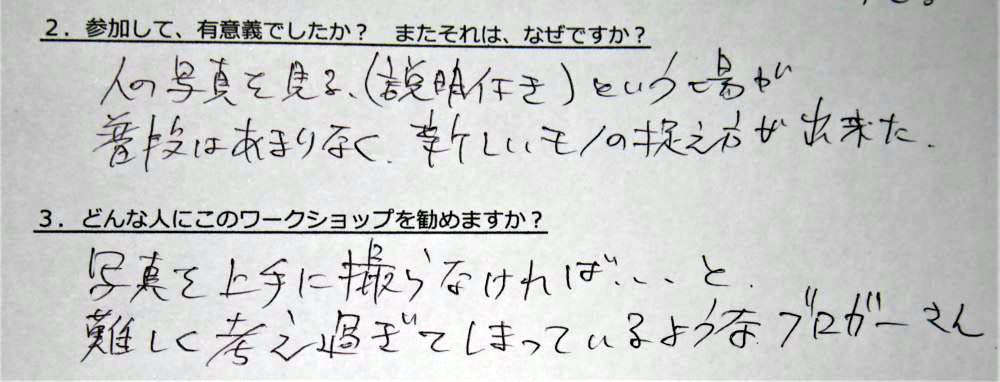 ２．参加して、有意義でしたか？　またそれは、なぜですか？
人の写真を見る、(説明付き)という場が
普段はあまりなく、新しいモノの捉え方が出来た.
３．どんな人にこのワークショップを勧めますか？
写真を上手に撮らなければ、、、と.
難しく考え過ぎてしまっているようなブロガーさん